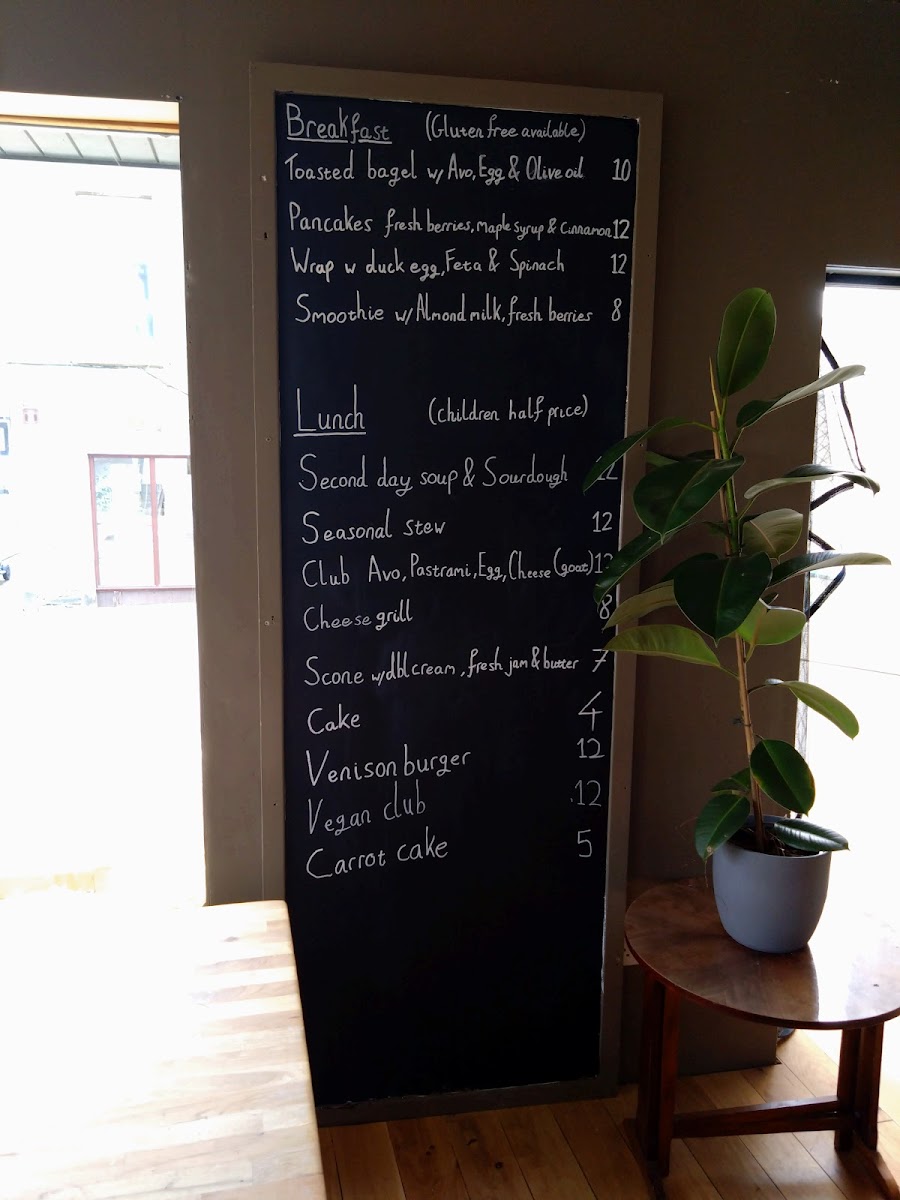 Breakfast (Gluten free available)
Toasted bagel w/ Avo, Egg & Olive oil 10
Pancakes fresh berries, maple syrup & cinnamon 12
Wrap w duck egg, Feta & Spinach 12
Smoothie w/ Almond milk, fresh berries 8
Lunch (children half price)
Second day soup & Sourdough
Seasonal stew 12
Club Avo, Pastrami, Egg, Cheese (goat)
Cheese grill 8
Scone w/ dbl cream, fresh jam & butter 7
Cake 4
Venison burger 12
Vegan club 12
Carrot cake 5